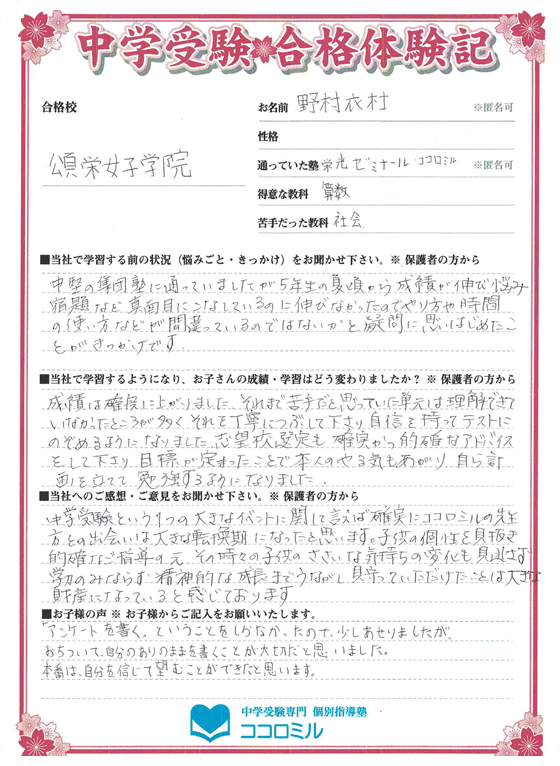 中学受験 合格体験記
合格校
頌栄女子学院
お名前 野村衣村 ※匿名可
性格
通っていた塾 栄光ゼミナール・ココロミル ※匿名可
得意な教科 算数
苦手だった教科 社会
■当社で学習する前の状況（悩みごと・きっかけ）をお聞かせ下さい。※ 保護者の方から
中堅の集団塾に通っていましたが5年生の夏頃から成績が伸び悩み
宿題など真面目にこなしているのに伸びなかったのでやり方や時間
の使い方などが間違っているのではないかと疑問に思いはじめたこ
とがきっかけです.
■当社で学習するようになり、お子さんの成績・学習はどう変わりましたか？ ※ 保護者の方から
成績は確実に上がりました. それまで苦手だと思っていた単元は理解できて
いなかったところが多く、それを丁寧につぶして下さり自信を持ってテストに
のぞめるようになりました. 志望校選定も確実かつ的確なアドバイス
をして下さり 目標が定まったことで本人のやる気もあがり 自ら計
画を立てて勉強するようになりました.
■当社へのご感想・ご意見をお聞かせ下さい。※ 保護者の方から
中学受験という1つの大きなイベントに関して言えば確実にココロミルの先生
方との出会いは大きな転換期になったと思います。子供の個性を見抜き
的確なご指導の元 その時々の子供のささいな気持ちの変化も見逃さず
学力のみならず 精神的な成長までうながし 見守っていただけたことは大きな
財産になっていると感じております
■お子様の声 ※ お子様からご記入をお願いいたします。
「アンケートを書く」ということをしらなかったので、少しあせりましたが、
おちついて、自分のありのままを書くことが大切だと思いました。
本番は、自分を信じて望むことができたと思います。
中学受験専門 個別指導塾
ココロミル